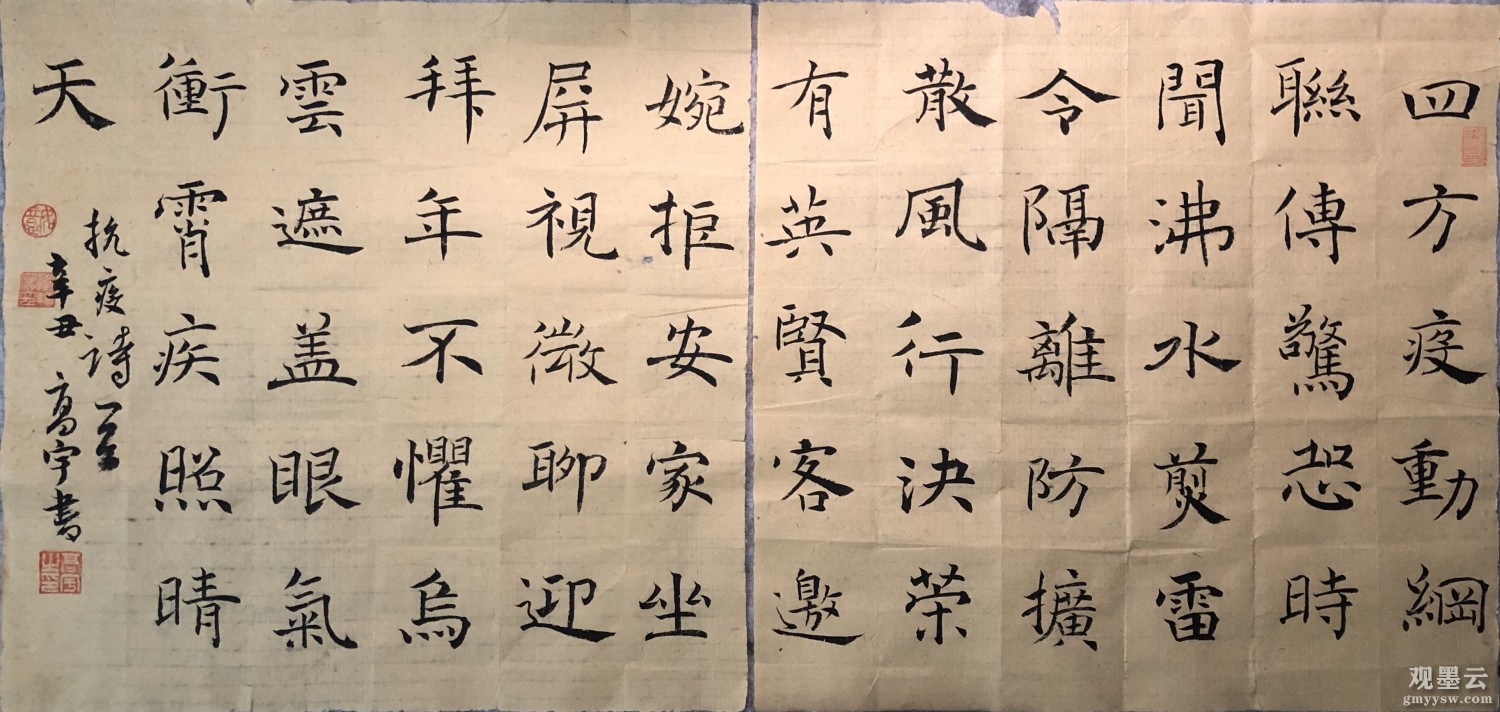 四方疫動綱
聯傳驚恐時
聞沸水煎雷
令隔離防擴
散風行決荣
有英賢客邀
婉拒安家坐
屏視微聊迎
拜年不懼烏
雲遮盖眼氣
衝霄疾照晴
天
抗疫诗一首
辛丑高宇書
观墨云
gmyysw.com